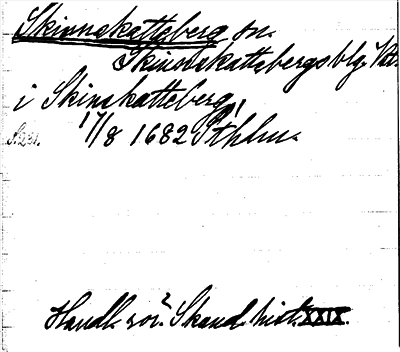 Skinnskatteberg sn.
Skinnskattebergs blg. Vstm.
i Skinskatteberg,
17/8 1682 Sthlm.
S. 231.
Handl. rör. Skand. hist. XXIX.